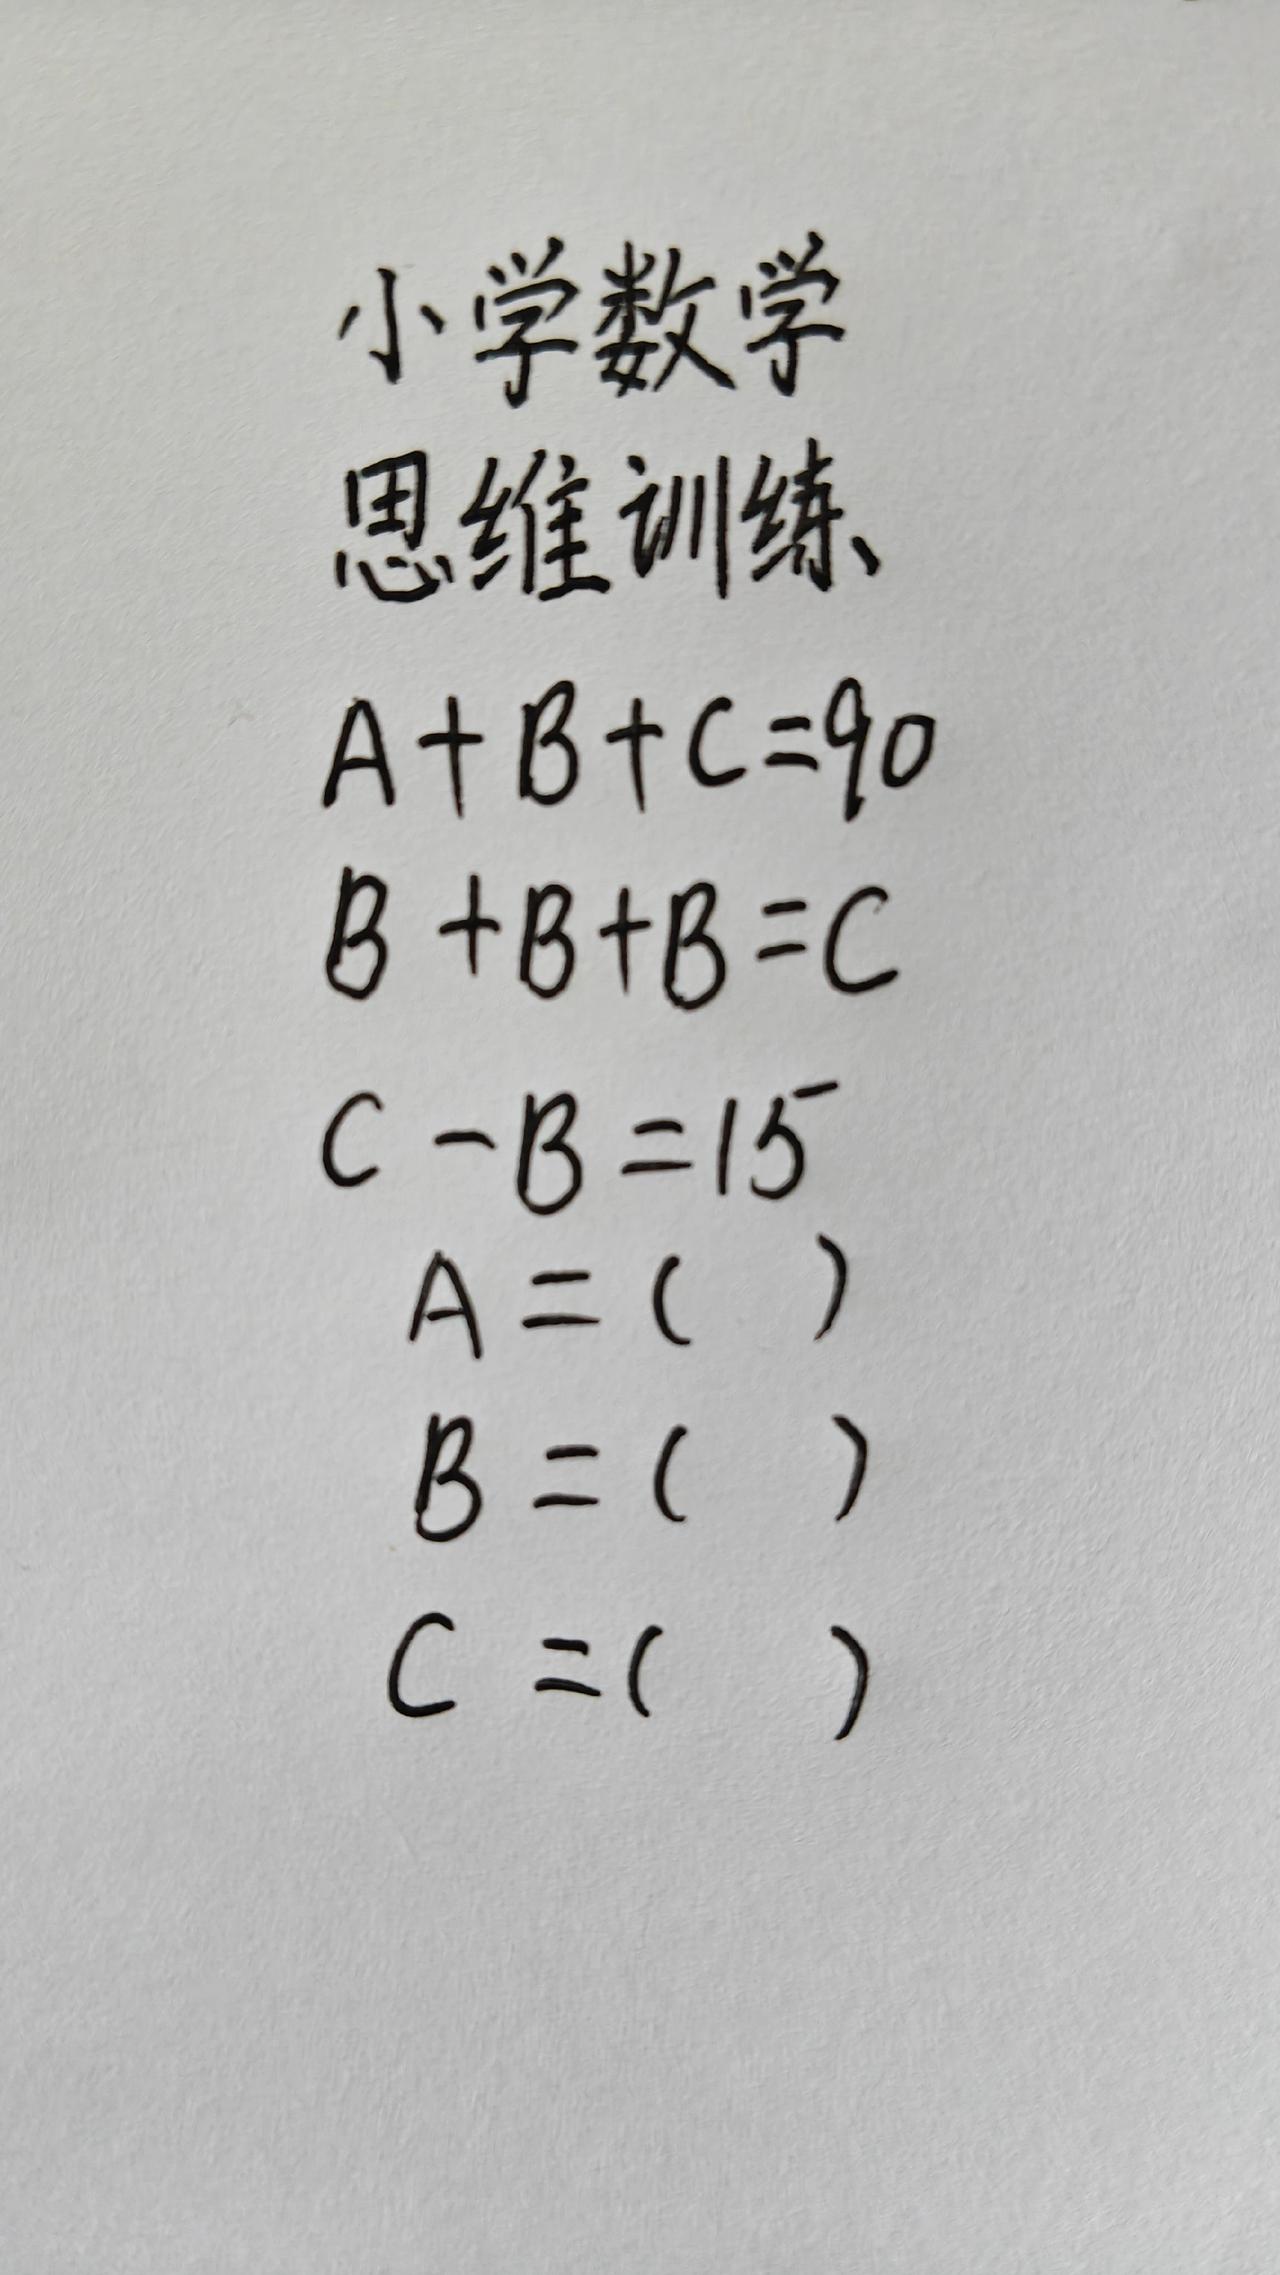 小学数学
思维训练
A+B+C=90
B+B+B=C
C-B=15
A=( )
B=( )
C=( )